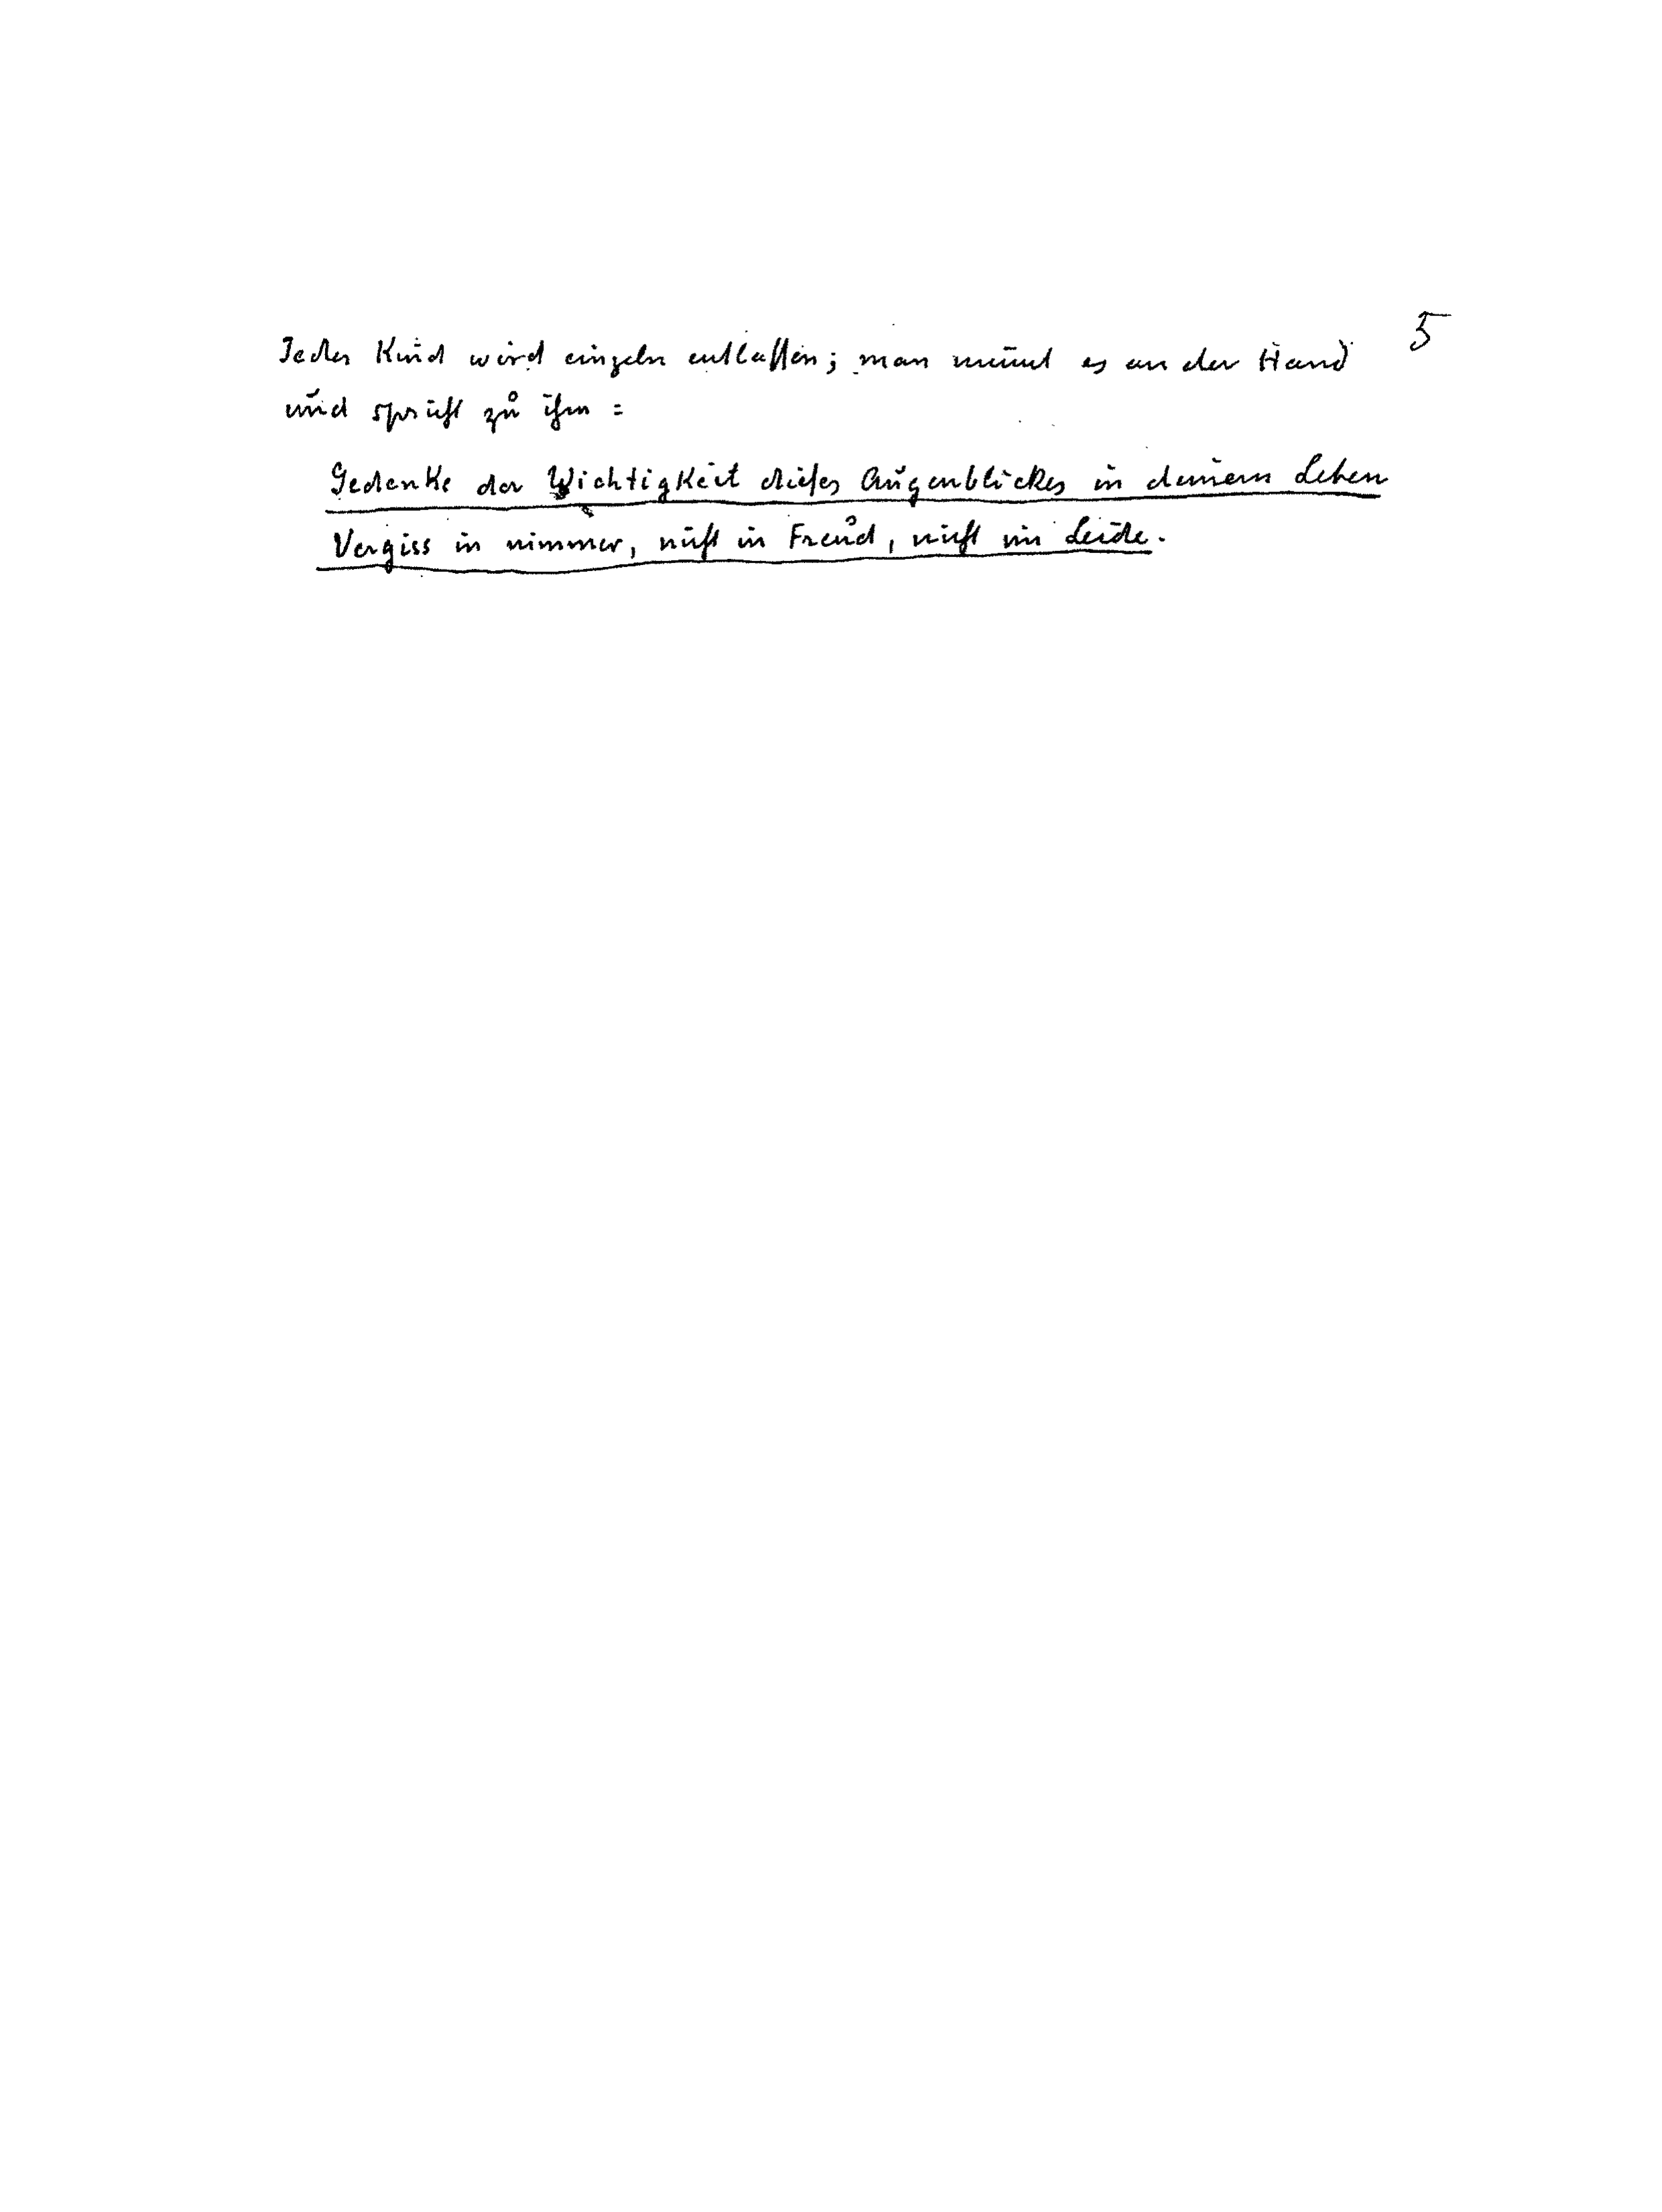 5
Jedes Kind wird einzeln entlassen; man nimmt es an der Hand
und spricht zu ihm:
Gedenke der Wichtigkeit dieses Augenblickes in deinem Leben
Vergiss in nimmer, nicht in Freud, nicht im Leide.